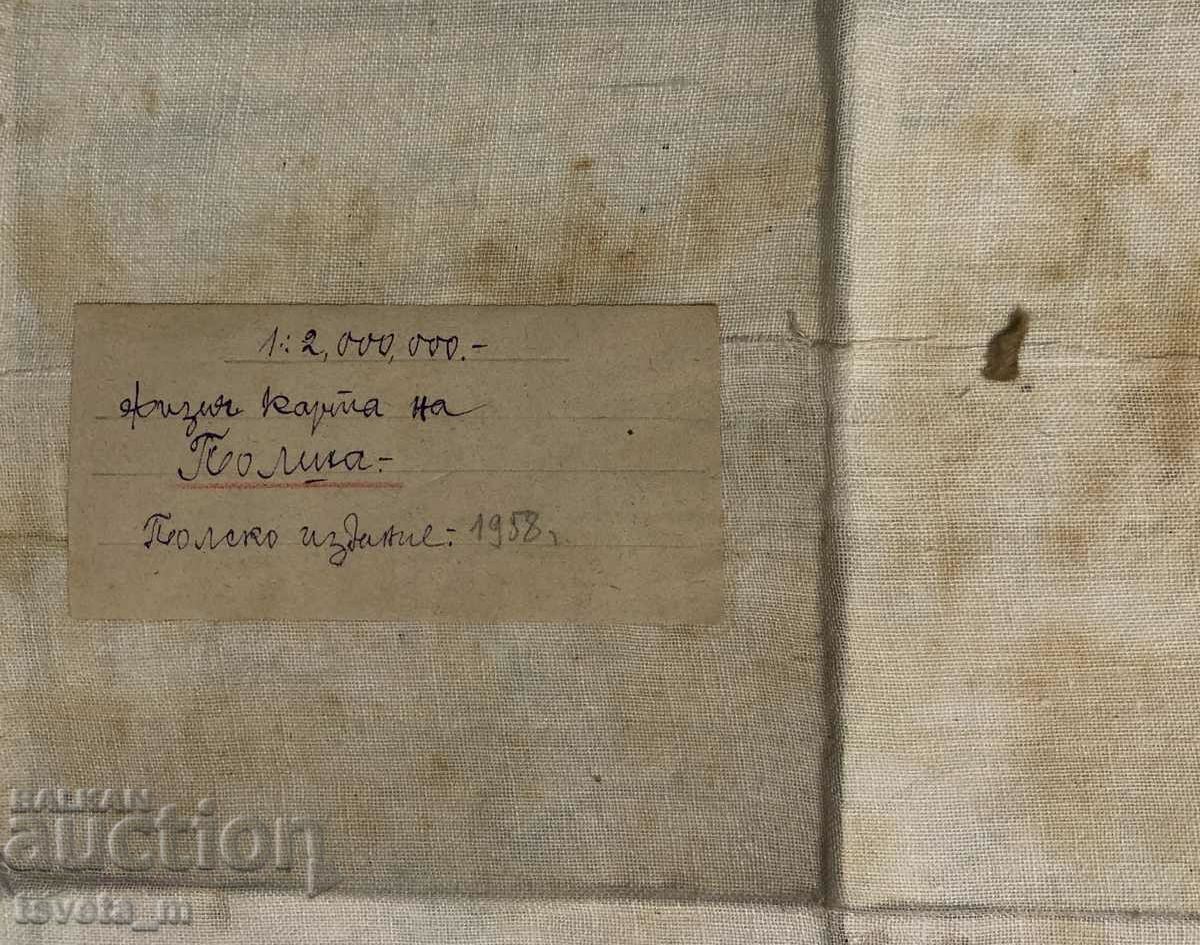 1:2,000,000.-
физич карта на
Полша.-
Полско издание.: 1958 г.
BALKAN
auction
tsveta_m